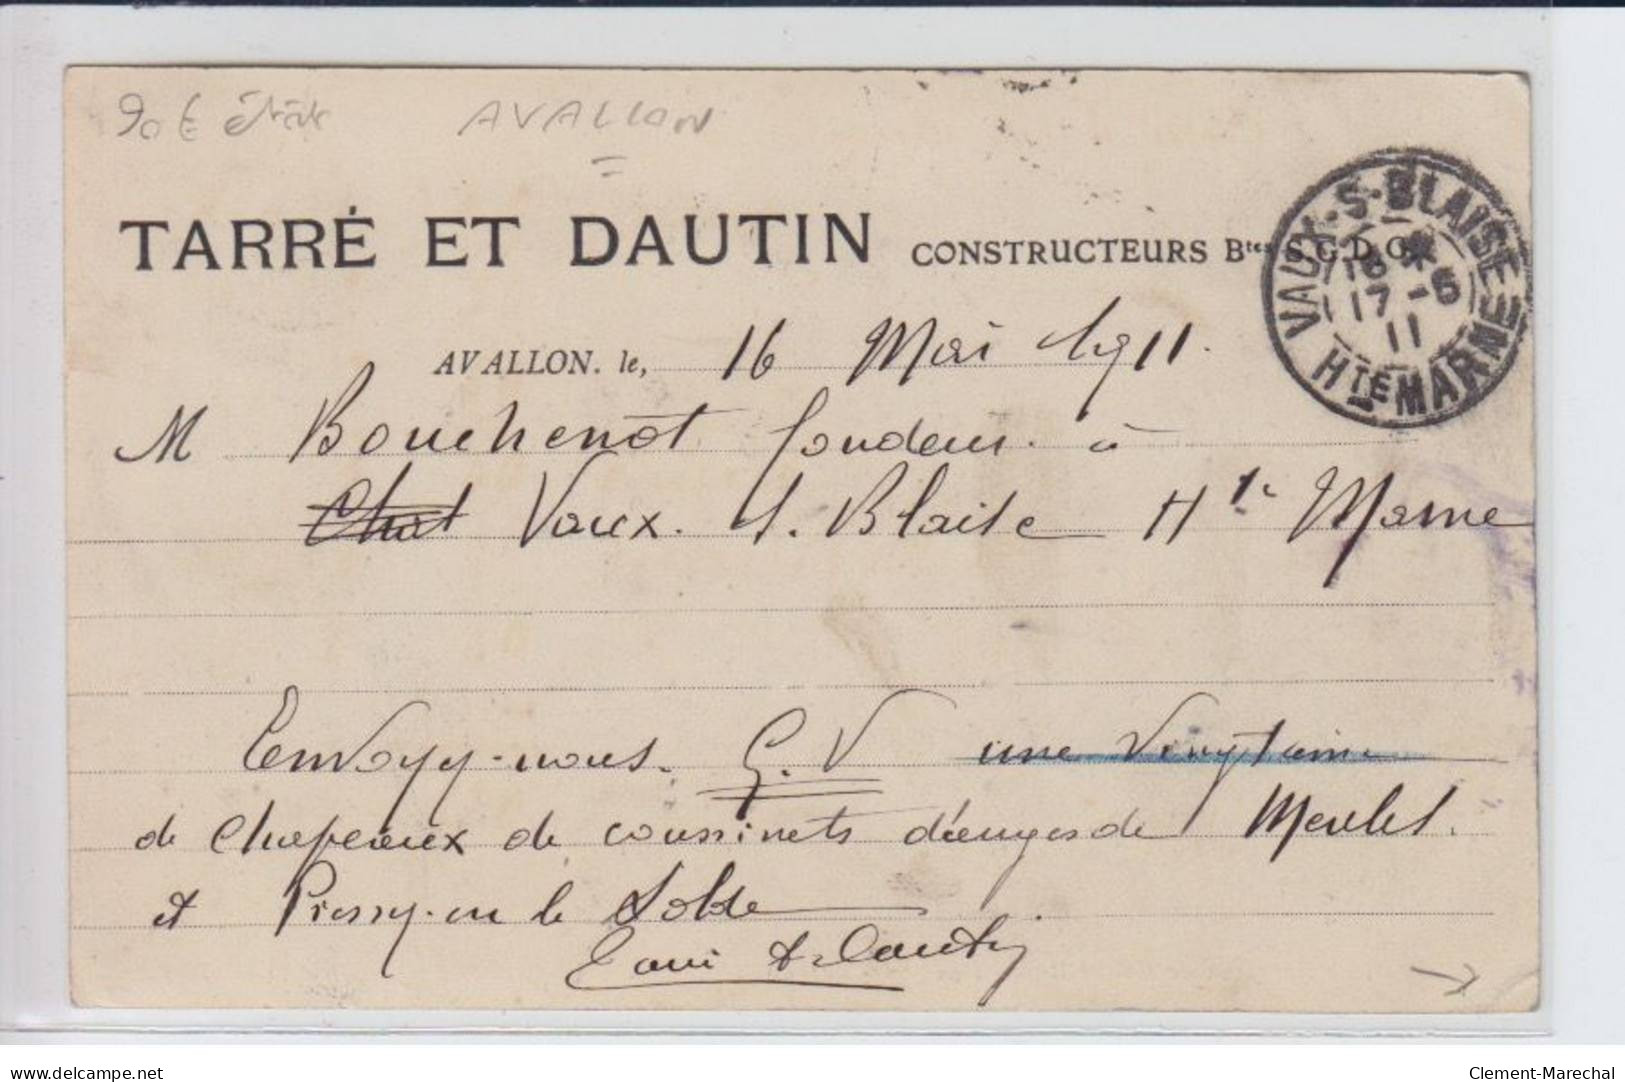 90 € état AVALLON
TARRÉ ET DAUTIN CONSTRUCTEURS Btés S.G.D.G.
VAUX-S-BLAISE
17 -5
11
Hte MARNE
AVALLON. le, 16 Mai 1911.
M Bouchenot fondeur. à
Chat Vaux. s. Blaise Hte Marne
Envoyez-nous. G.V une vingtaine
de chapeaux de coussinets d'auges de Meules.
et Pressez-en le Solde
Tarré et Dautin
Clement-Marechal
https://www.delcampe.net